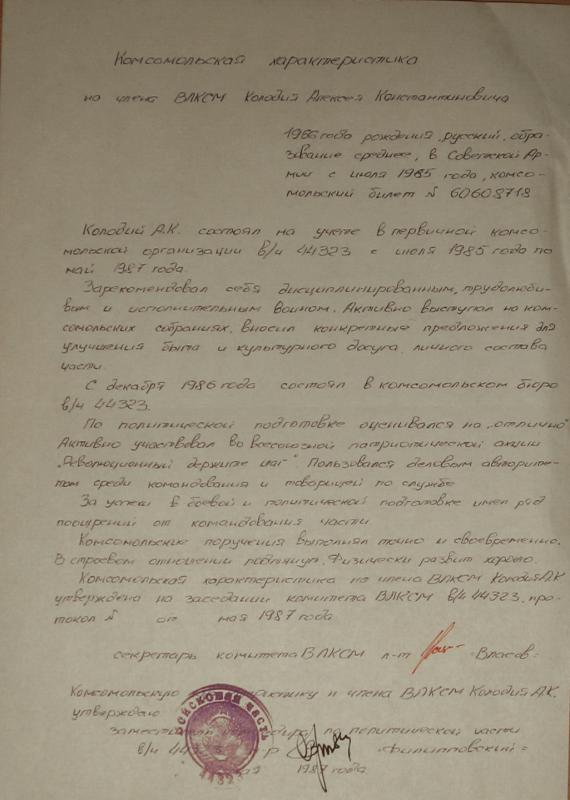 Комсомольская характеристика
на члена ВЛКСМ Колодия Алексея Константиновича
1966 года рождения, русский, обра-
зование среднее, в Советской Ар-
мии с июля 1985 года, комсо-
мольский билет № 60608718
Колодий А.К. состоял на учете в первичной комсо-
мольской организации в/ч 44323 с июля 1985 года по
май 1987 года.
Зарекомендовал себя дисциплинированным, трудолюби-
вым и исполнительным воином. Активно выступал на ком-
сомольских собраниях, вносил конкретные предложения для
улучшения быта и культурного досуга личного состава
части.
С декабря 1986 года состоял в комсомольском бюро
в/ч 44323.
По политической подготовке оценивался на „отлично"
Активно участвовал во Всесоюзной патриотической акции
„Революционный держите шаг". Пользовался деловым авторите-
том среди командования и товарищей по службе
За успехи в боевой и политической подготовке имел ряд
поощрений от командования части.
Комсомольские поручения выполнял точно и своевременно.
В строевом отношении подтянут. Физически развит хорошо.
Комсомольская характеристика на члена ВЛКСМ Колодия А.К
утверждена на заседании комитета ВЛКСМ в/ч 44323, про-
токол № от мая 1987 года
секретарь комитета ВЛКСМ л-т Власов =
Комсомольскую члена ВЛКСМ Колодия А.К.
утверждаю
по политической части
в/ч 44323 =Филипповский=
1987 года
Войсковая часть
44323